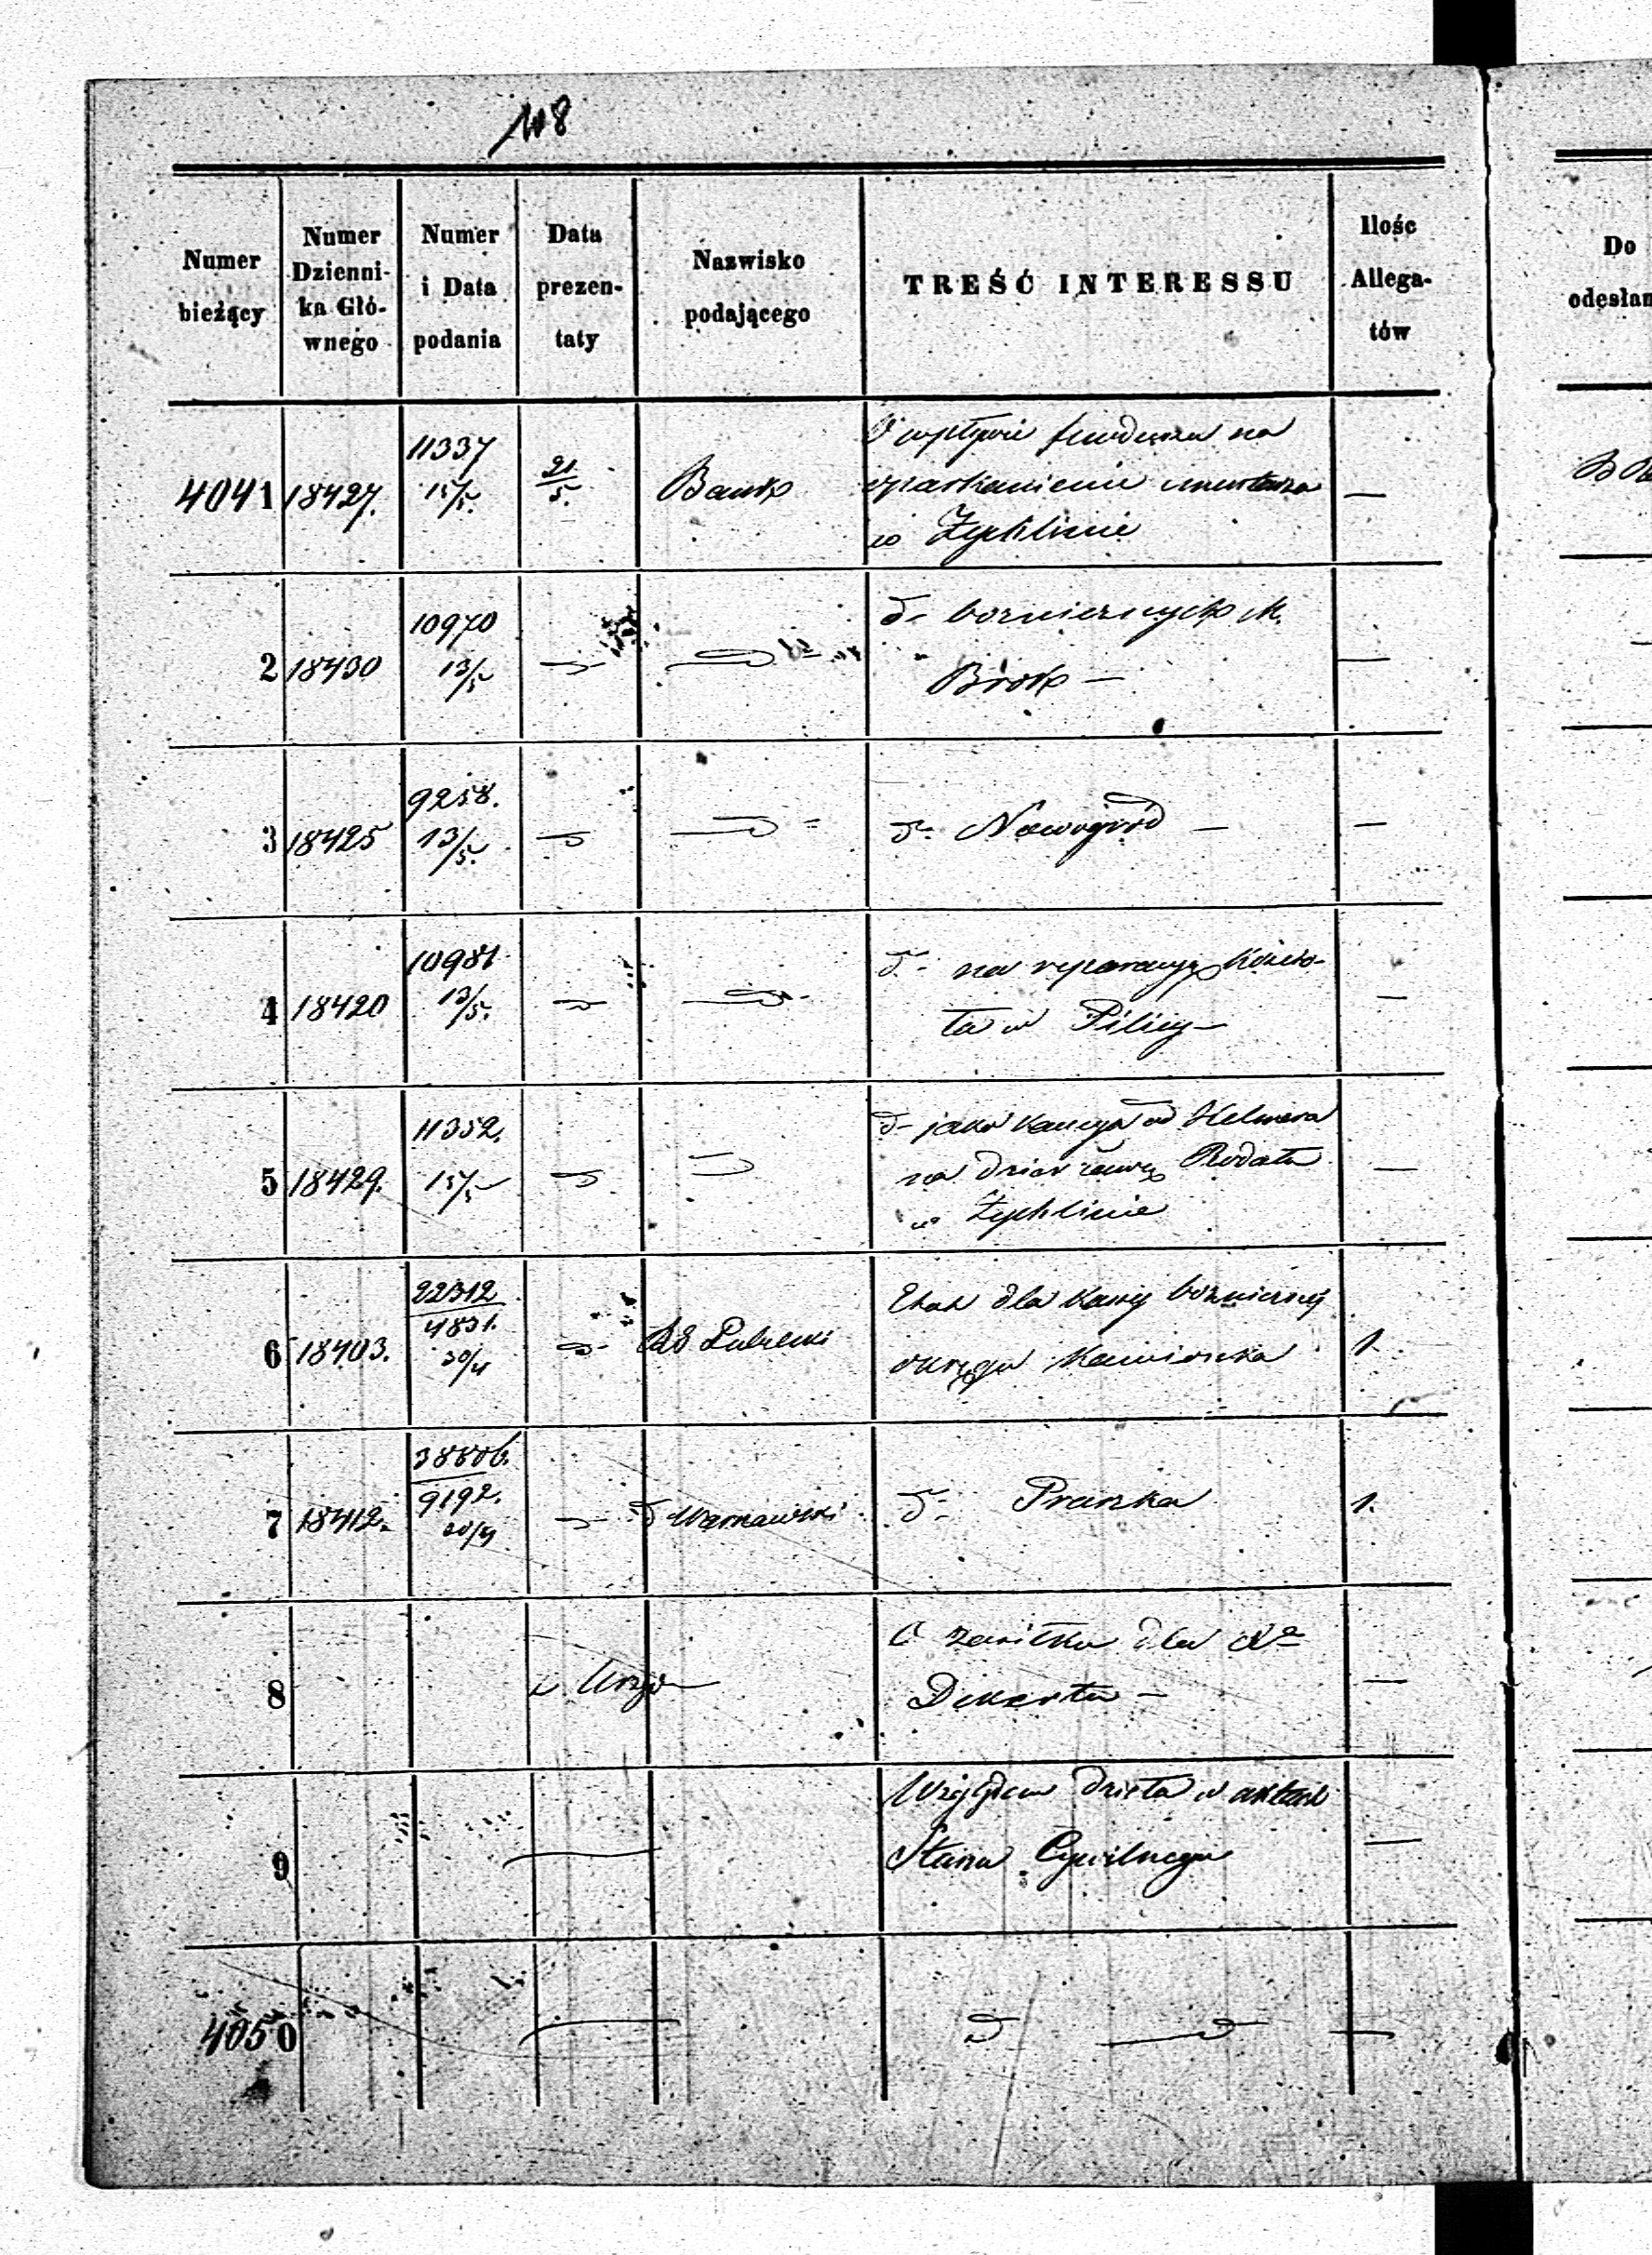 108
Numer bieżący
Numer Dzienni- ka Głó- wnego
Numer i Data podania
Data prezen- taty
Nazwisko podającego
TREŚĆ INTERESSU
Ilośc Allega- tów
Do odesłan
4041 18427. 11337 15/5. 21/5. Bank O wpływie funduszu na
oparkanienie cmentarza —
w Żychlinie
2 18430 10970 13/5 d- bożniczych M.
Brok — —
3 18425 9258. 13/5. d- Nowogród — —
4 18420 10981 13/5. d- na reparacyą Kościo-
ła w Pilicy — —
5 18429. 11352. 15/5 d- jako kaucya od Helmera
na dzierżawę Rodału —
w Żychlinie
6 18403. 22312/4831. 30/4 RG Lubelski Etat dla Kassy bożniczej
okręgu Kamionka 1.
7 18412. 38806./9192. 20/4 d Warszawski d- Praszka 1.
8 z Urzę O zasiłku dla
Dekerta — —
9 Względem dzieła w aktach
Stanu Cywilnego —
4050 d —